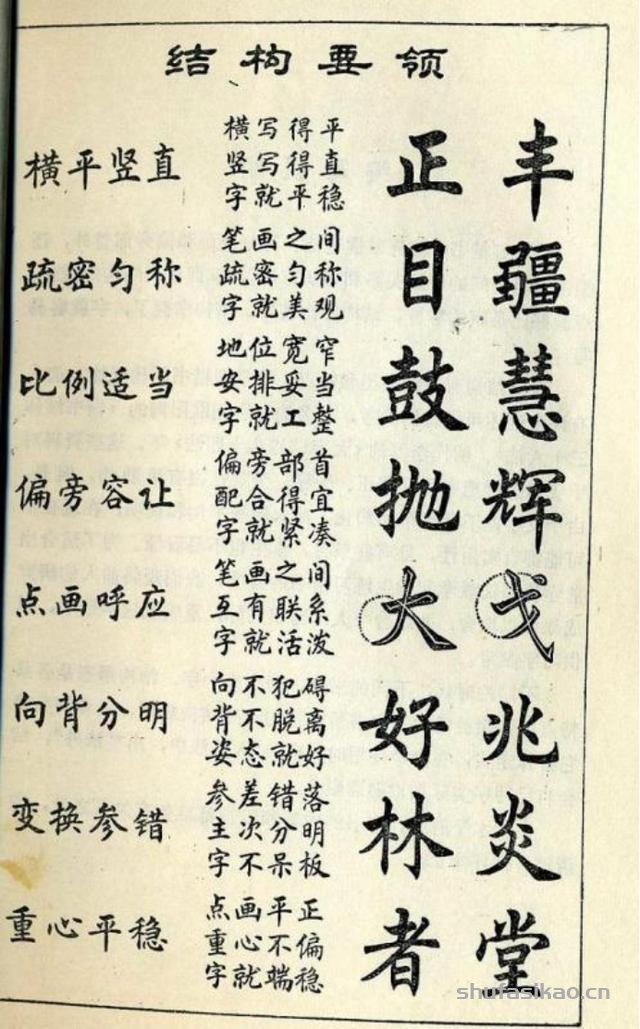 结构要领
横平竖直
横写得平
竖写得直
字就平稳
正丰
疏密匀称
笔画之间
疏密匀称
字就美观
目疆
比例适当
地位宽窄
安排妥当
字就工整
鼓慧
偏旁容让
偏旁部首
配合得宜
字就紧凑
抛辉
点画呼应
笔画之间
互有联系
字就活泼
大戈
向背分明
向不犯碍
背不脱离
姿态就好
好兆
变换参错
参差错落
主次分明
字不呆板
林炎
重心平稳
点画平正
重心不偏
字就端稳
者堂
shufasikao.cn